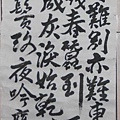 難別亦難東
殘春蠶到
成灰淚始乾
鬢改夜吟